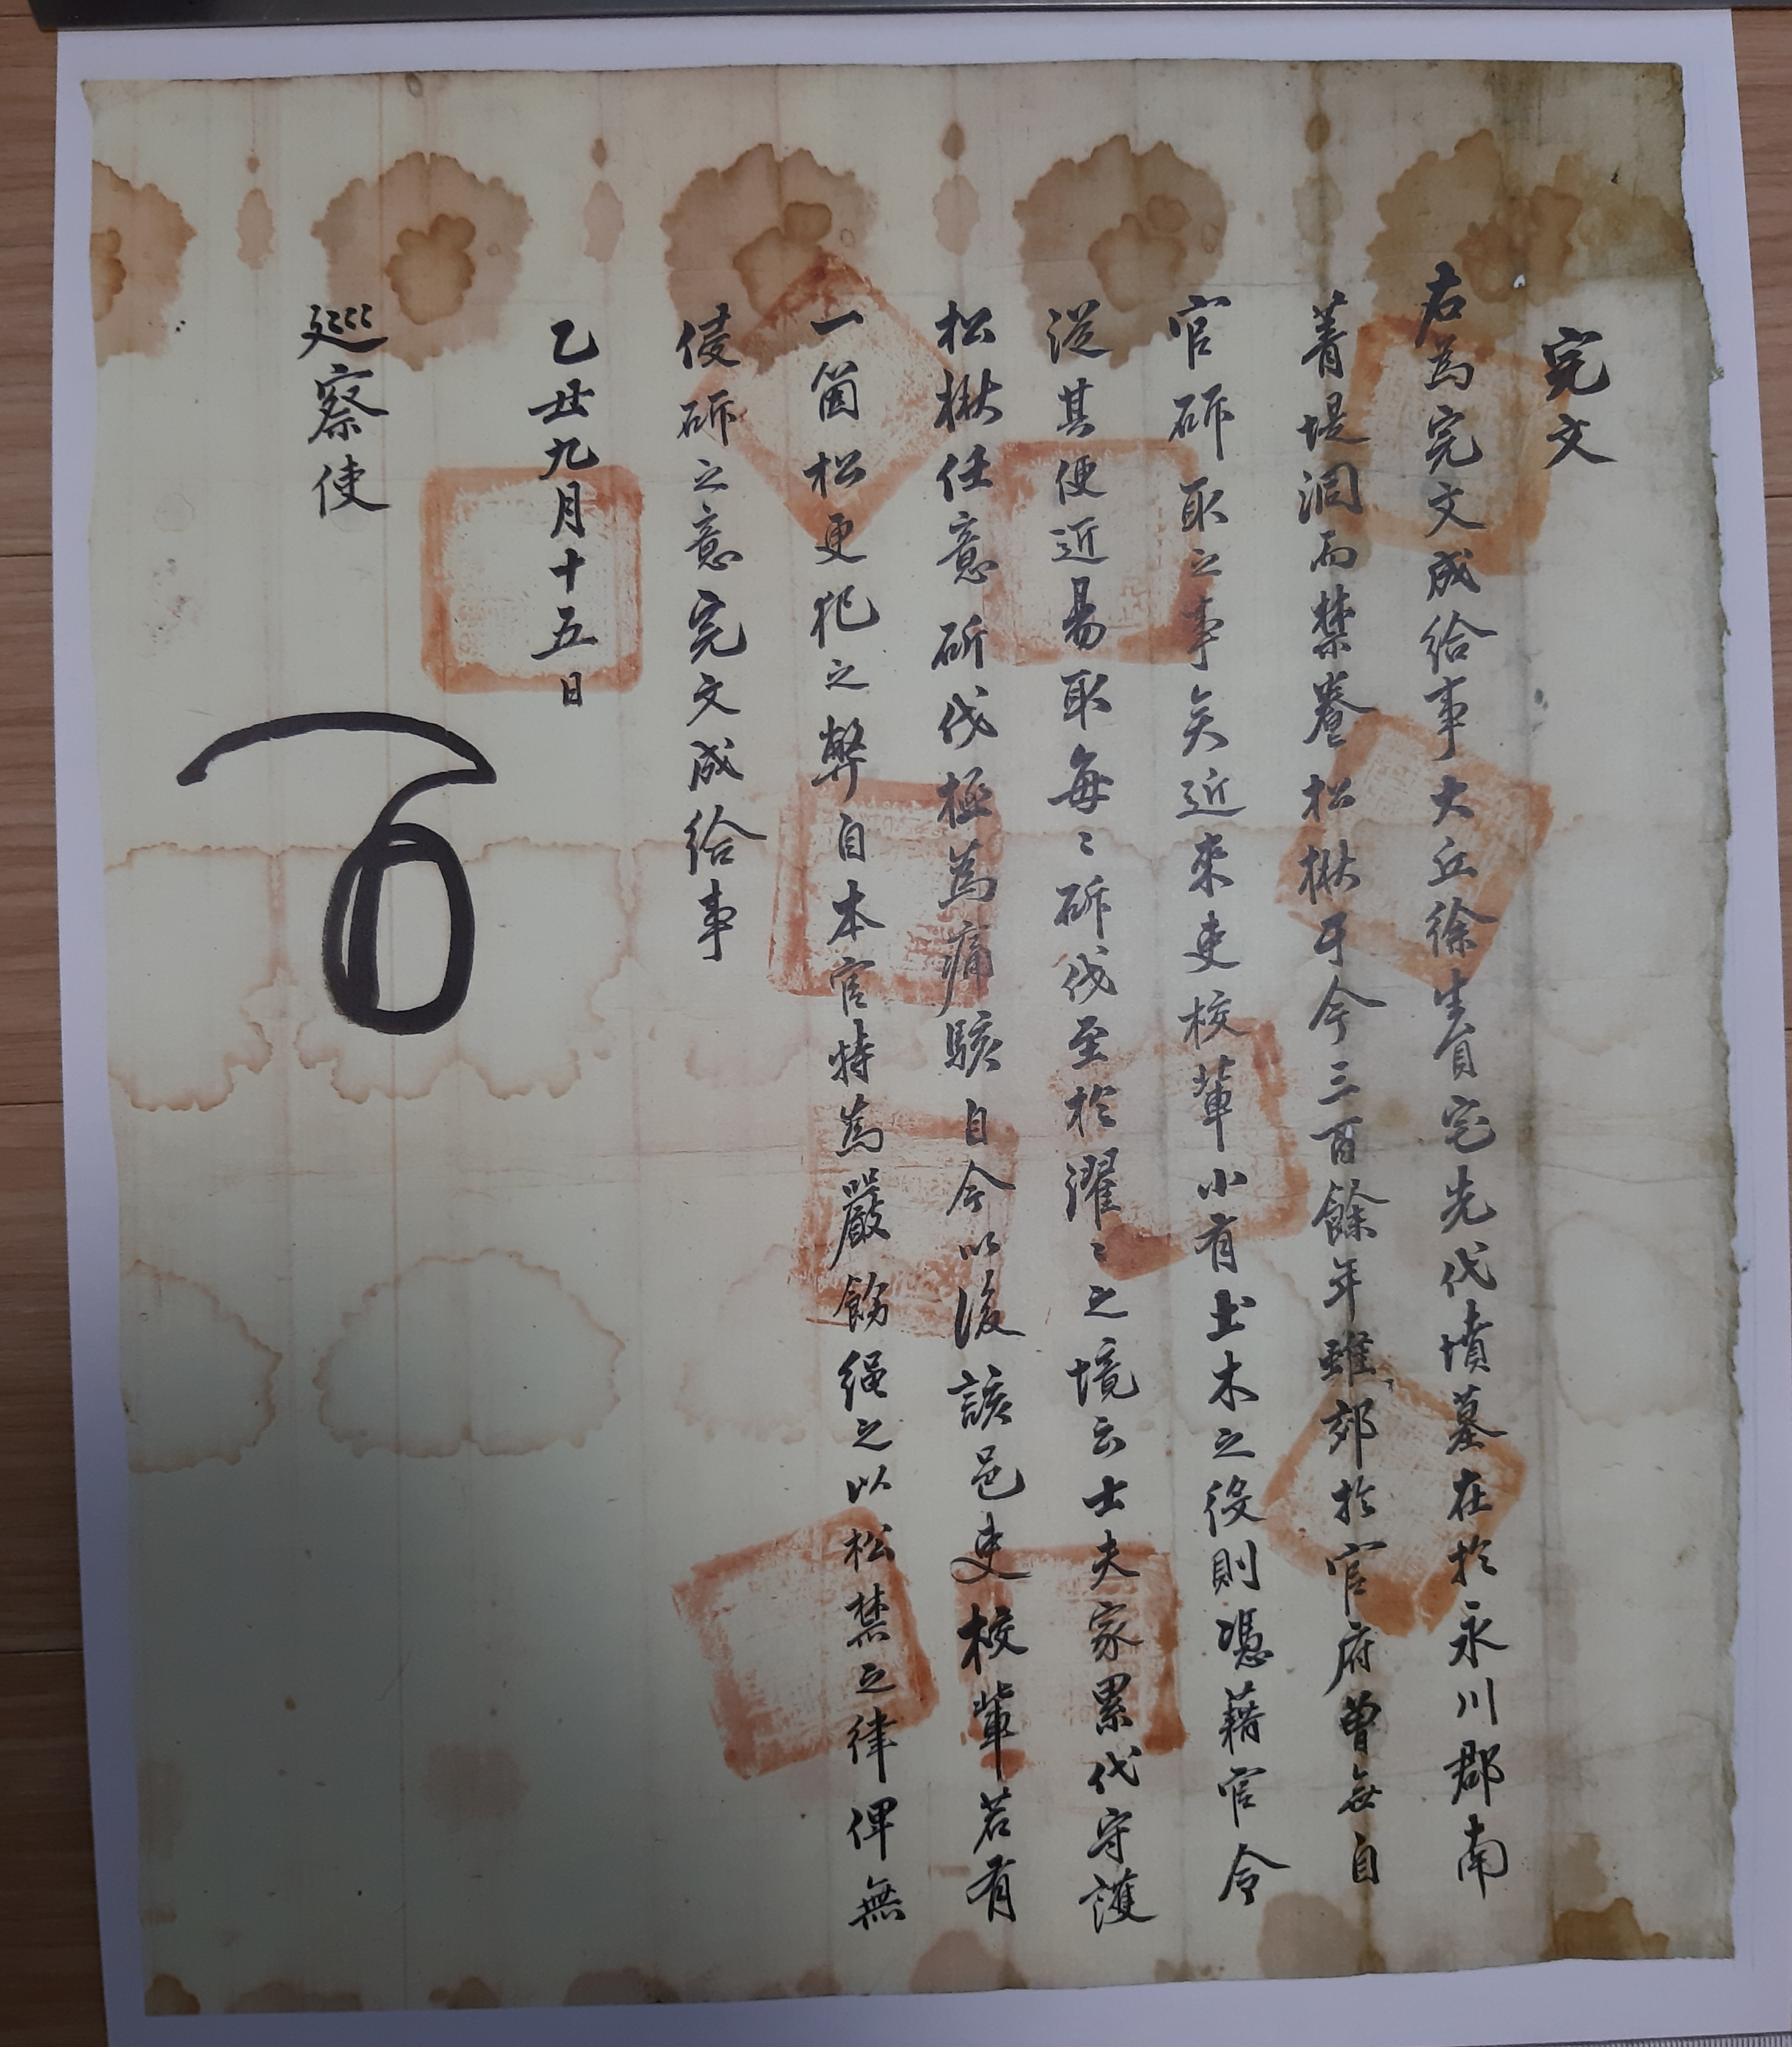 完文
右爲完文成給事大丘徐生員宅先代墳墓在於永川郡南
菁堤洞而禁養松楸于今三百餘年雖郊於官府曾無自
官斫取之事矣近來吏校輩小有土木之役則憑藉官令
從其便近易取每〻斫伐至於濯〻之境云士夫家累代守護
松楸任意斫伐極爲痛駭自今以後該邑吏校輩若有
一箇松更犯之弊自本官特爲嚴飭繩之以松禁之律俾無
侵斫之意完文成給事
乙丑九月十五日
巡察使